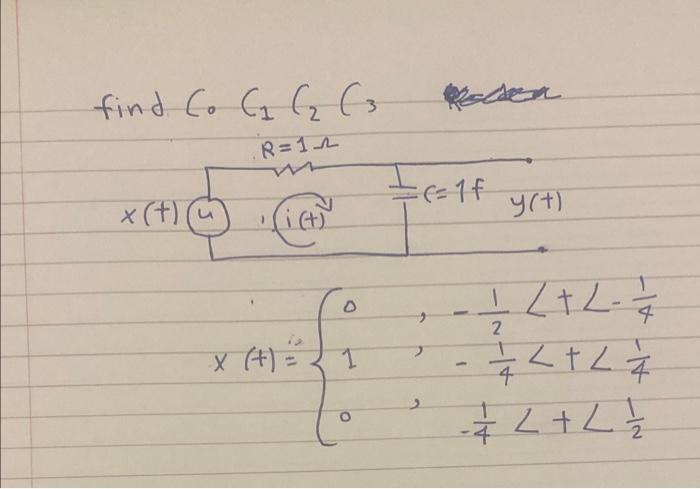 find C₀ C₁ C₂ C₃
R=1Ω
x(t) i(t) C=1f y(t)
0 , -1/2 < t < -1/4
x(t) = { 1 , -1/4 < t < 1/4
0 , -1/4 < t < 1/2